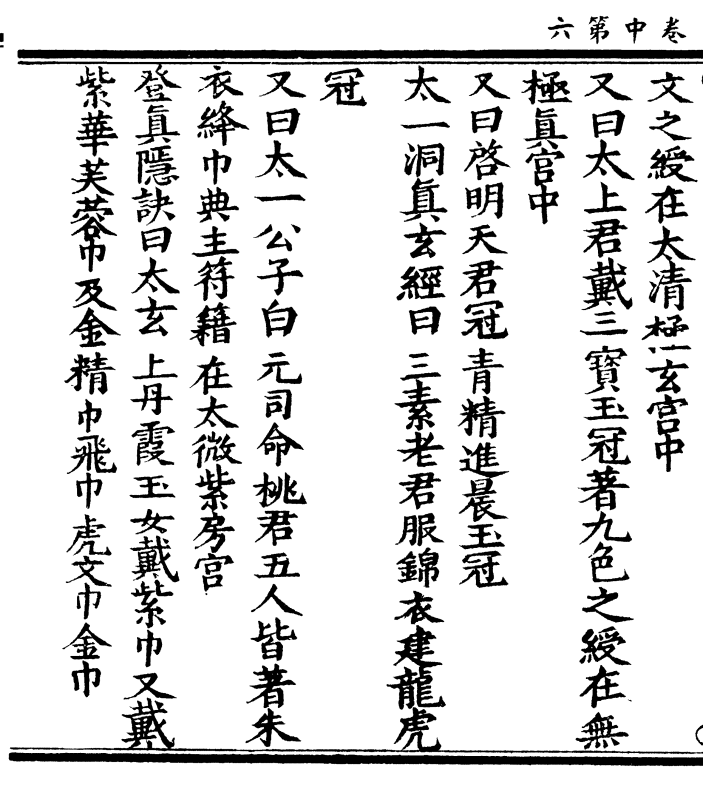 卷中第六
文之綬在太清極玄宮中
又曰太上君戴三寶玉冠著九色之綬在無
極眞宮中
又曰啓明天君冠青精進晨玉冠
太一洞眞玄經曰三素老君服錦衣建龍虎
冠
又曰太一公子白元司命桃君五人皆著朱
衣絳巾典主符籍在太微紫房宮
登眞隱訣曰太玄上丹霞玉女戴紫巾又戴
紫華芙蓉巾及金精巾飛巾虎文巾金巾